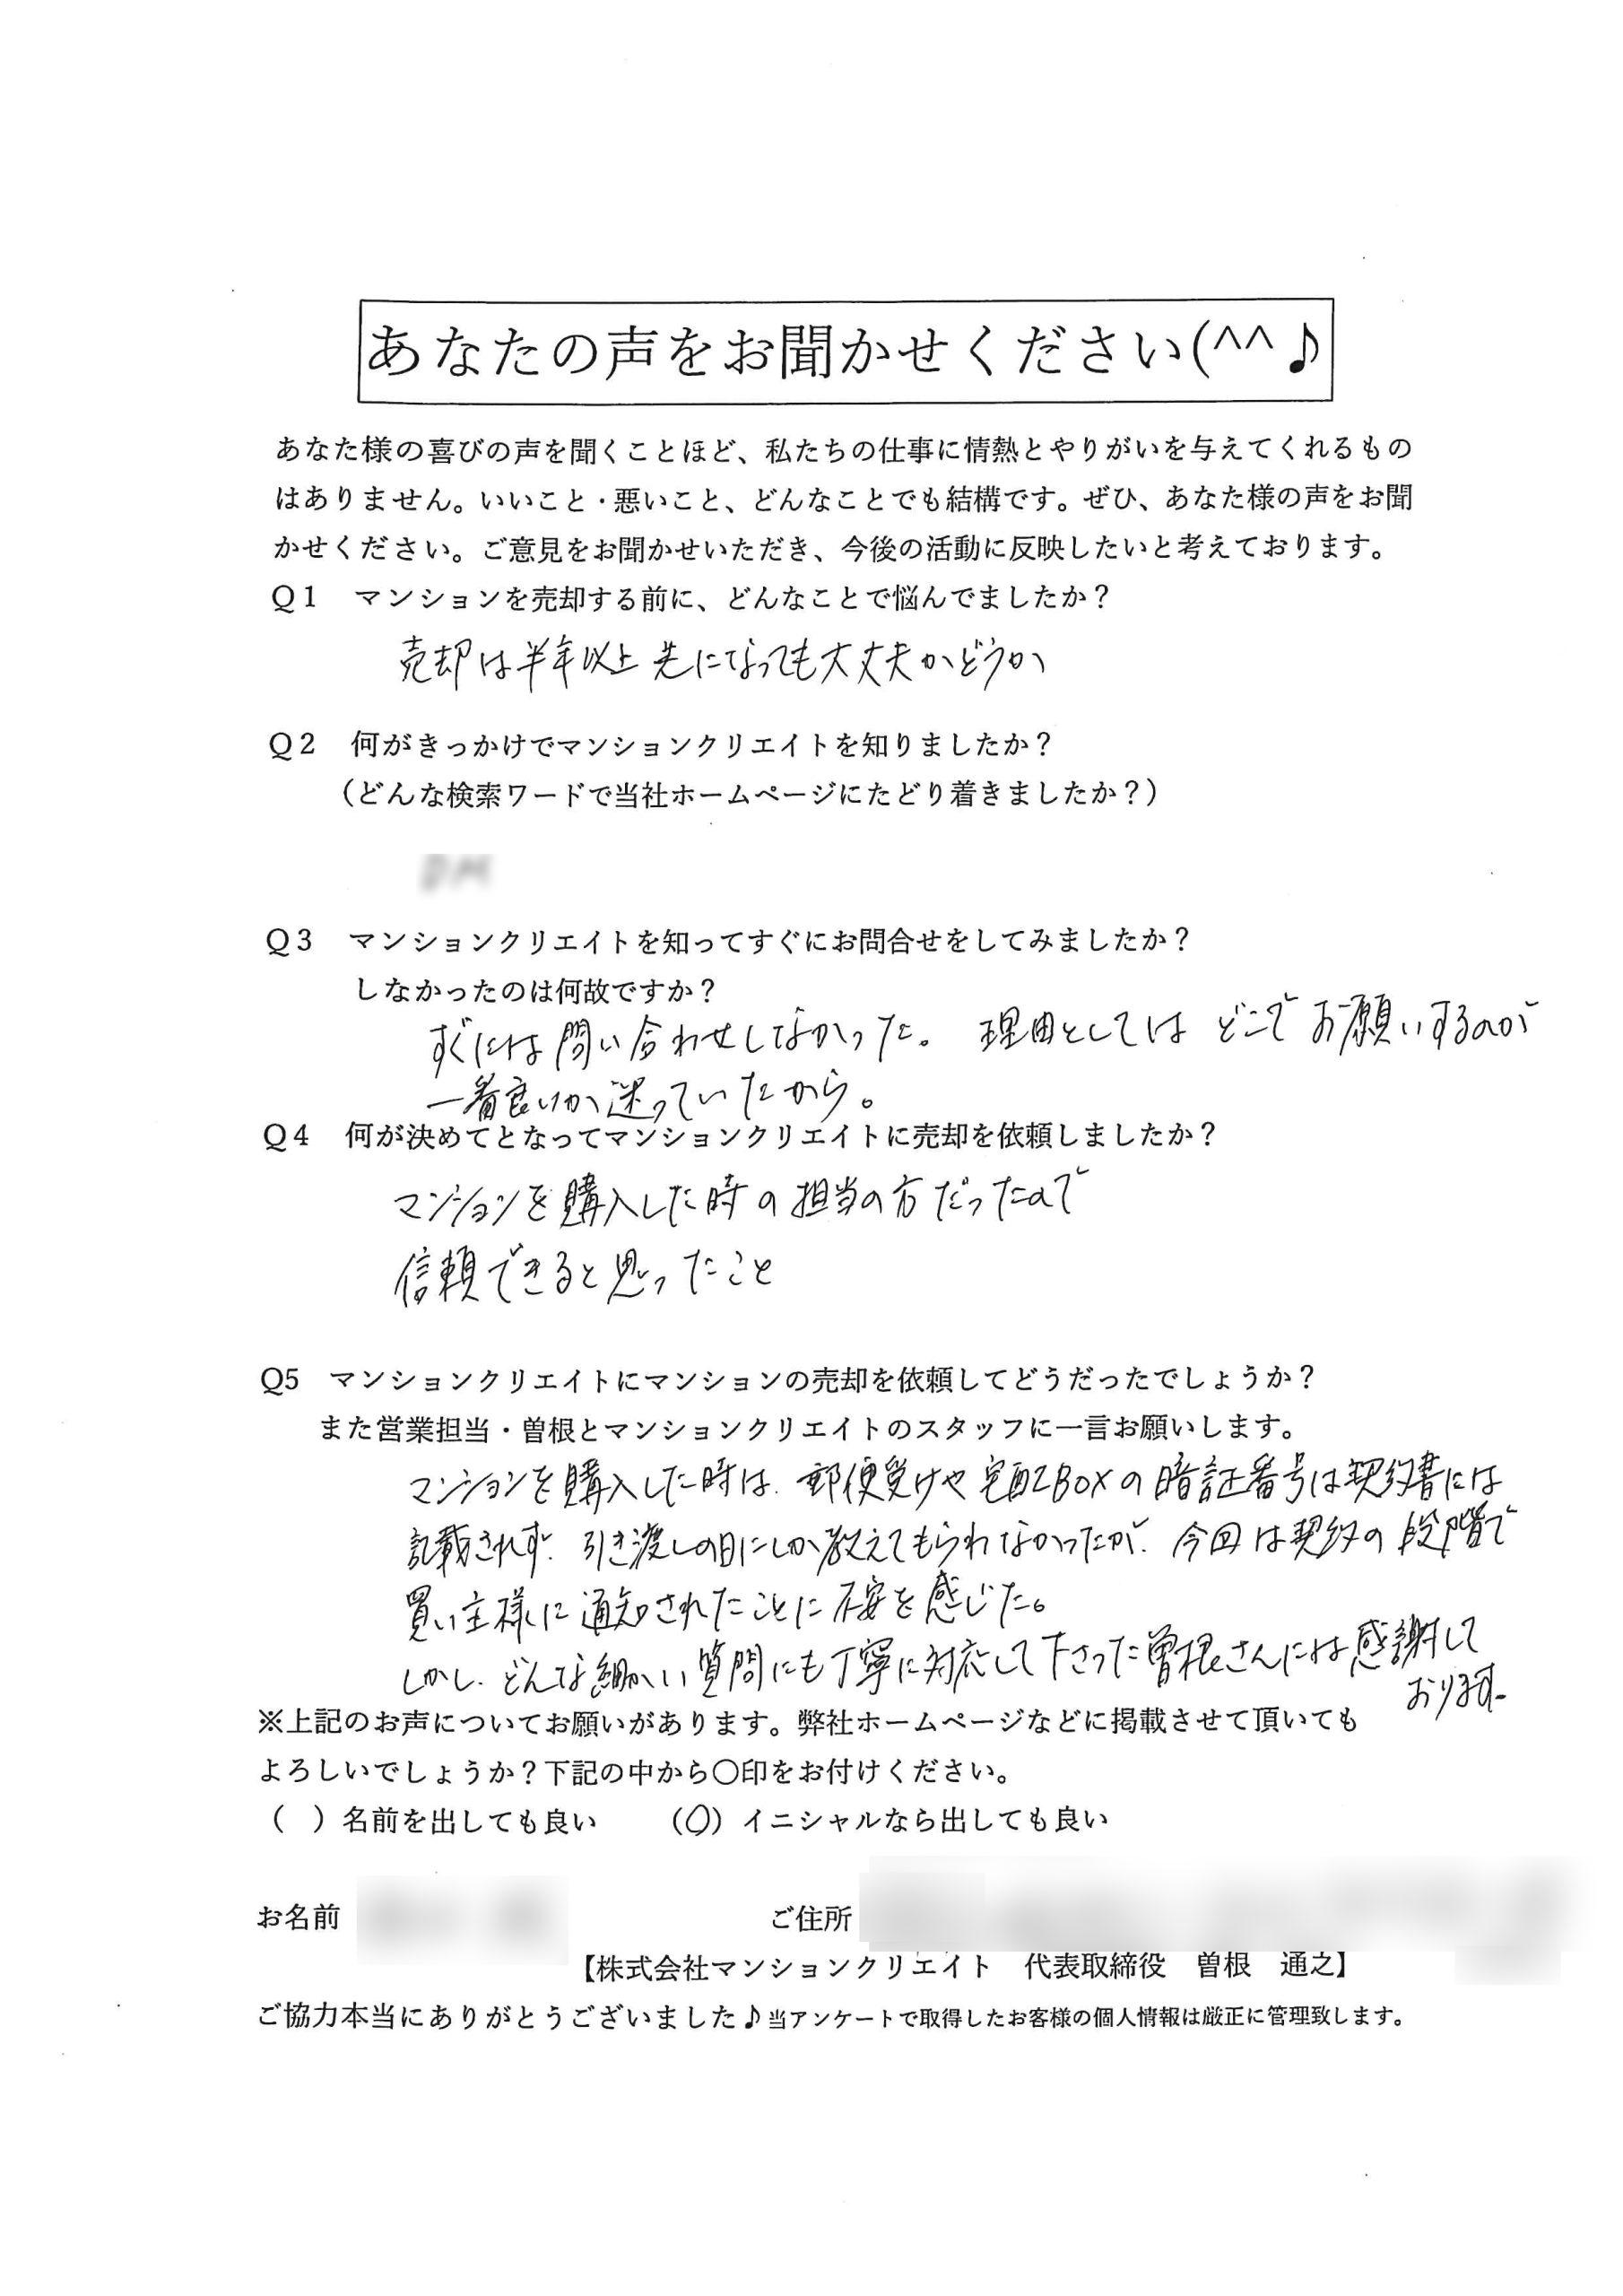 あなたの声をお聞かせください(^^♪
あなた様の喜びの声を聞くことほど、私たちの仕事に情熱とやりがいを与えてくれるもの
はありません。いいこと・悪いこと、どんなことでも結構です。ぜひ、あなた様の声をお聞
かせください。ご意見をお聞かせいただき、今後の活動に反映したいと考えております。
Q1　マンションを売却する前に、どんなことで悩んでましたか？
売却は半年以上先になっても大丈夫かどうか
Q2　何がきっかけでマンションクリエイトを知りましたか？
（どんな検索ワードで当社ホームページにたどり着きましたか？）
Q3　マンションクリエイトを知ってすぐにお問合せをしてみましたか？
しなかったのは何故ですか？
すぐには問い合わせしなかった。理由としてはどこでお願いするのが
一番良いか迷っていたから。
Q4　何が決めてとなってマンションクリエイトに売却を依頼しましたか？
マンションを購入した時の担当の方だったので
信頼できると思ったこと
Q5　マンションクリエイトにマンションの売却を依頼してどうだったでしょうか？
また営業担当・曽根とマンションクリエイトのスタッフに一言お願いします。
マンションを購入した時は、郵便受けや宅配BOXの暗証番号は契約書には
記載されず、引き渡しの日にしか教えてもられなかったが、今回は契約の段階で
買い主様に通知されたことに不安を感じた。
しかし、どんな細かい質問にも丁寧に対応して下さった曽根さんには感謝して
おります。
※上記のお声についてお願いがあります。弊社ホームページなどに掲載させて頂いても
よろしいでしょうか？下記の中から〇印をお付けください。
（　）名前を出しても良い　　（〇）イニシャルなら出しても良い
お名前　ご住所
【株式会社マンションクリエイト　代表取締役　曽根　通之】
ご協力本当にありがとうございました♪当アンケートで取得したお客様の個人情報は厳正に管理致します。